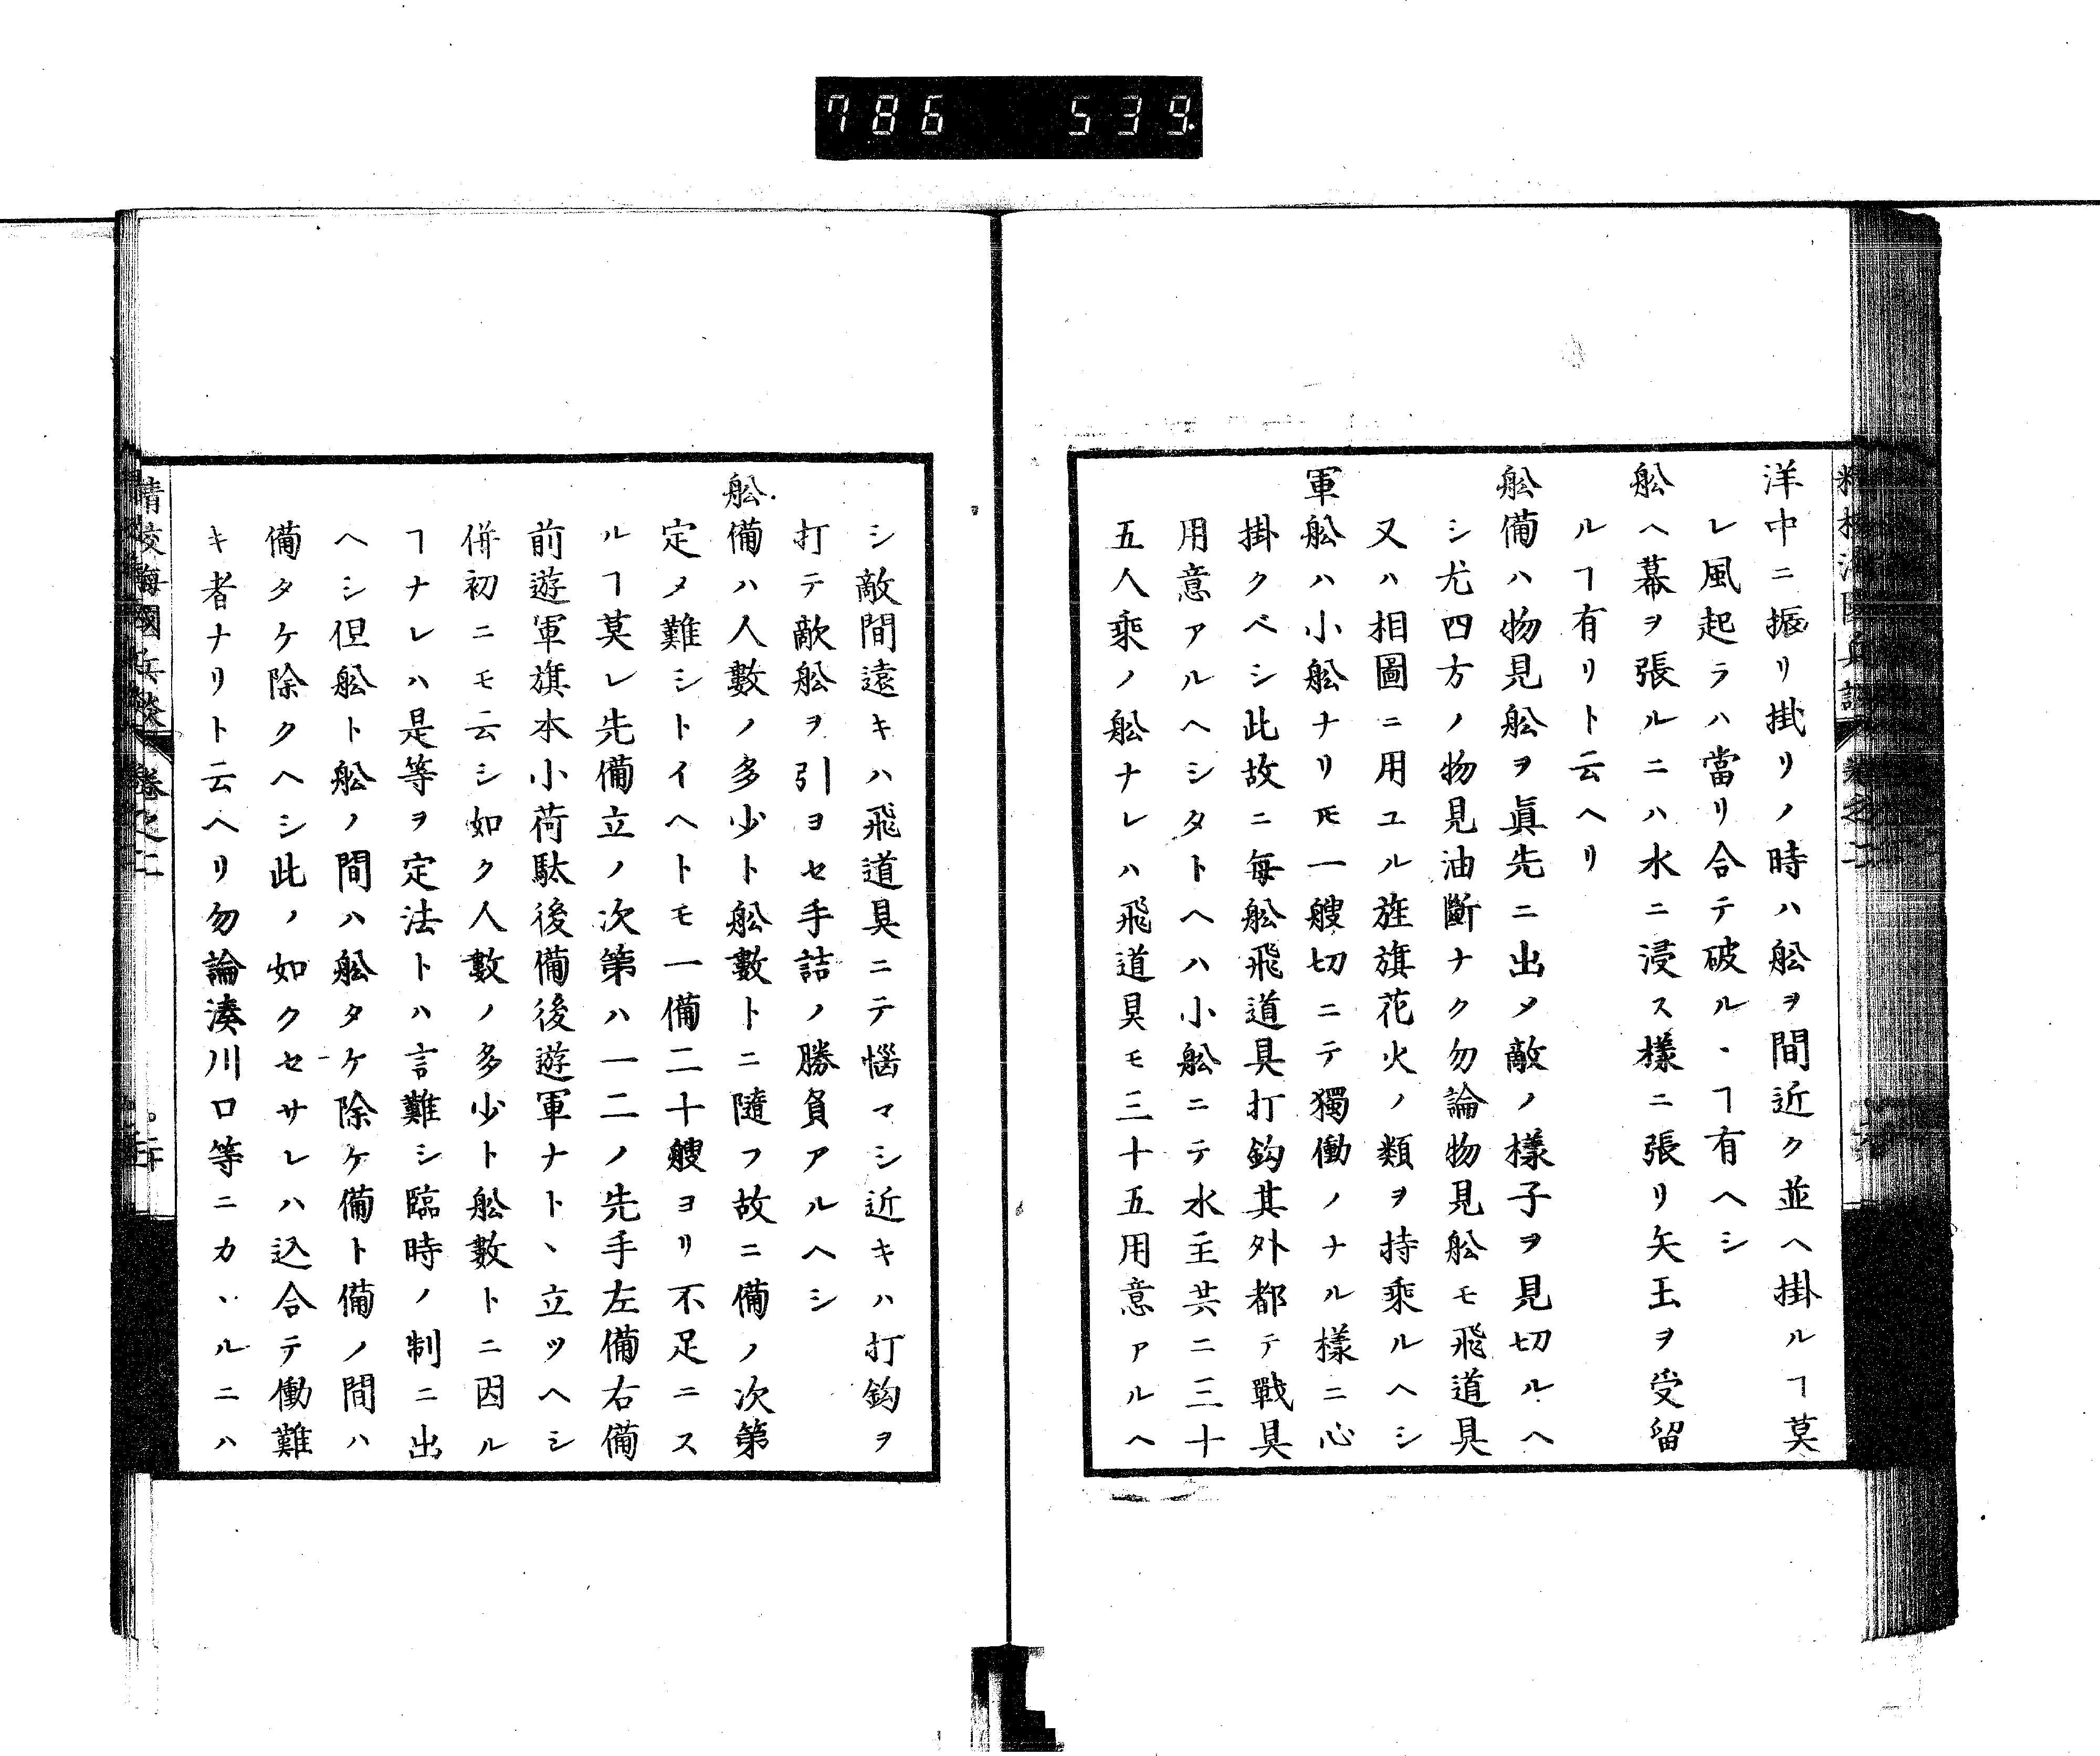 786 539
洋中ニ振リ掛リノ時ハ舩ヲ間近ク並ヘ掛ルヿ莫
レ風起ラハ當リ合テ破ル、ヿ有ヘシ
舩ヘ幕ヲ張ルニハ水ニ浸ス樣ニ張リ矢玉ヲ受留
ルヿ有リト云ヘリ
舩備ハ物見舩ヲ眞先ニ出メ敵ノ樣子ヲ見切ルヘ
シ尤四方ノ物見油斷ナク勿論物見舩モ飛道具
又ハ相圖ニ用ユル旌旗花火ノ類ヲ持乘ルヘシ
軍舩ハ小舩ナリ𪜈一艘切ニテ獨働ノナル樣ニ心
掛クベシ此故ニ每舩飛道具打鈎其外都テ戰具
用意アルヘシタトヘハ小舩ニテ水主共ニ三十
五人乘ノ舩ナレハ飛道具モ三十五用意アルヘ
シ敵間遠キハ飛道具ニテ惱マシ近キハ打鈎ヲ
打テ敵舩ヲ引ヨセ手詰ノ勝負アルヘシ
舩備ハ人數ノ多少ト舩數トニ隨フ故ニ備ノ次第
定メ難シトイヘトモ一備二十艘ヨリ不足ニス
ルヿ莫レ先備立ノ次第ハ一二ノ先手左備右備
前遊軍旗本小荷駄後備後遊軍ナト、立ツヘシ
併初ニモ云シ如ク人數ノ多少ト舩數トニ因ル
ヿナレハ是等ヲ定法トハ言難シ臨時ノ制ニ出
ヘシ但舩ト舩ノ間ハ舩タケ除ケ備ト備ノ間ハ
備タケ除クヘシ此ノ如クセサレハ込合テ働難
キ者ナリト云ヘリ勿論湊川口等ニカヽルニハ
精校海國兵談 卷之二